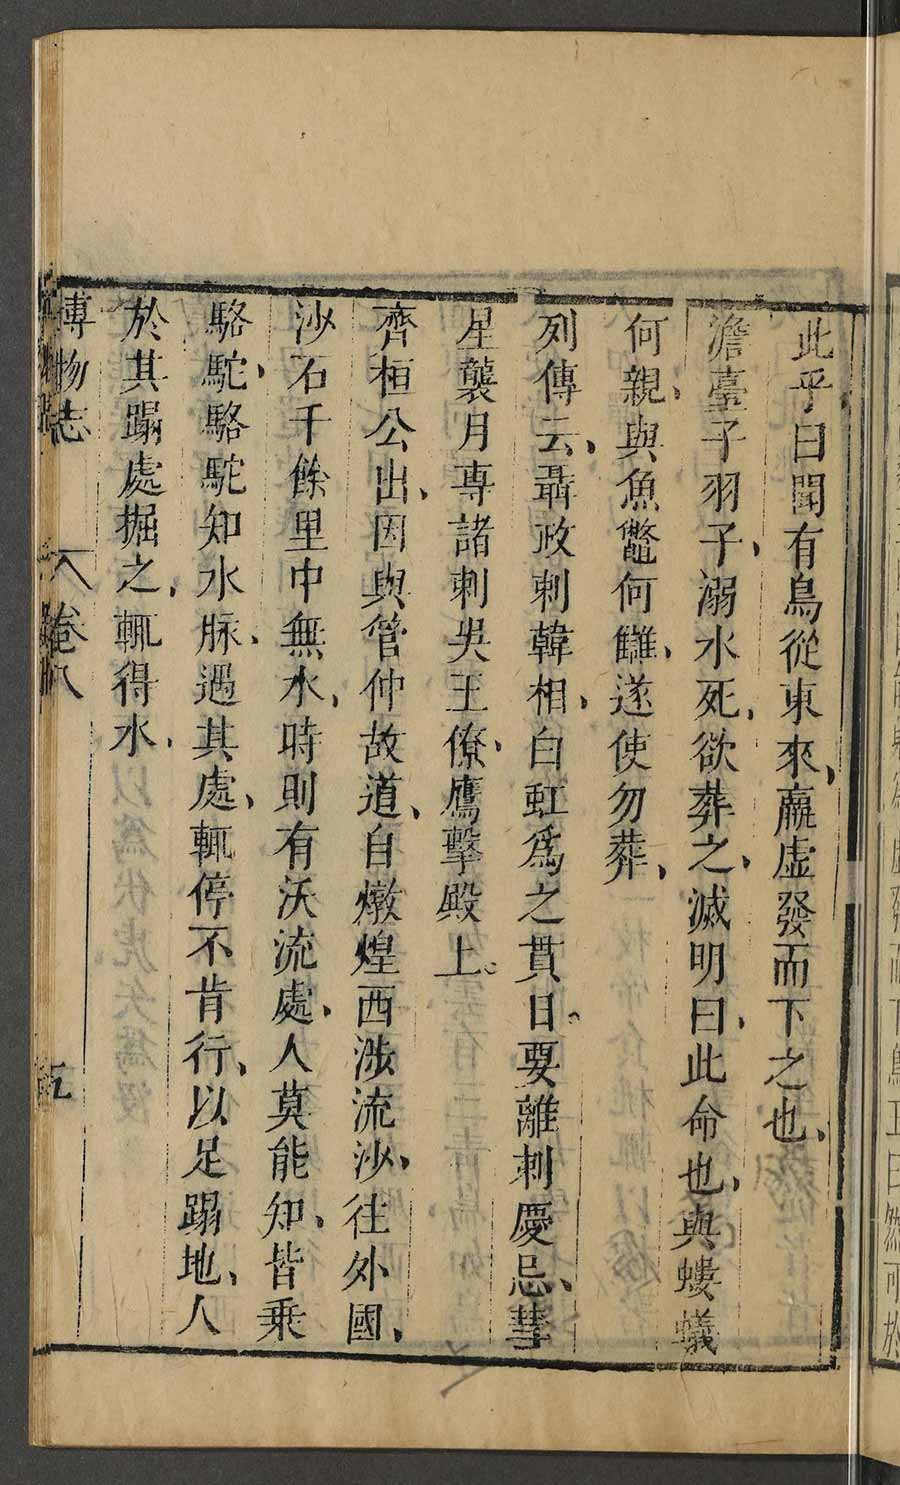 此乎曰聞有鳥從東來、羸虛發而下之也、
澹臺子羽子、溺水死、欲葬之、滅明曰、此命也、與螻蟻
何親、與魚鼈何讎、遂使勿葬、
列傳云、聶政刺韓相、白虹爲之貫日、要離刺慶忌、彗
星襲月專諸刺吳王僚、鷹擊殿上。
齊桓公出、因與管仲故道、自燉煌西涉流沙、往外國、
沙石千餘里中無水、時則有沃流處、人莫能知、皆乗
駱駝、駱駝知水脉、遇其處、輒停不肯行、以足蹋地、人
於其蹋處掘之、輒得水、
博物志 卷八 五